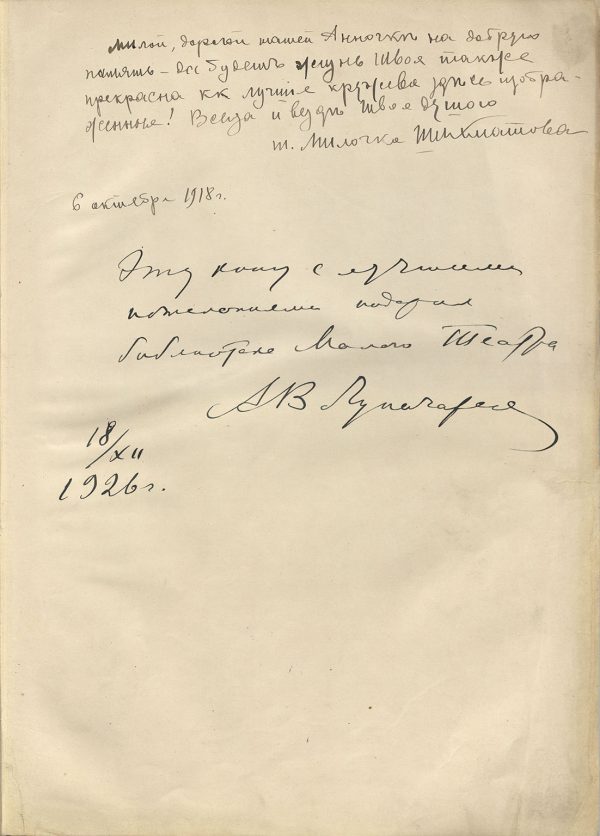 Милой, дорогой нашей Анночкѣ на добрую
память – да будетъ жизнь твоя также
прекрасна кк лучшіе кружева здѣсь изобра-
женные! Всегда и вездѣ твоя душою
т. Милочка Шихматова
6 октября 1918 г.
Эту книгу с лучшими
пожеланиями подарил
библиотеке Малого Театра
А В Луначарский
18/XII
1926 г.